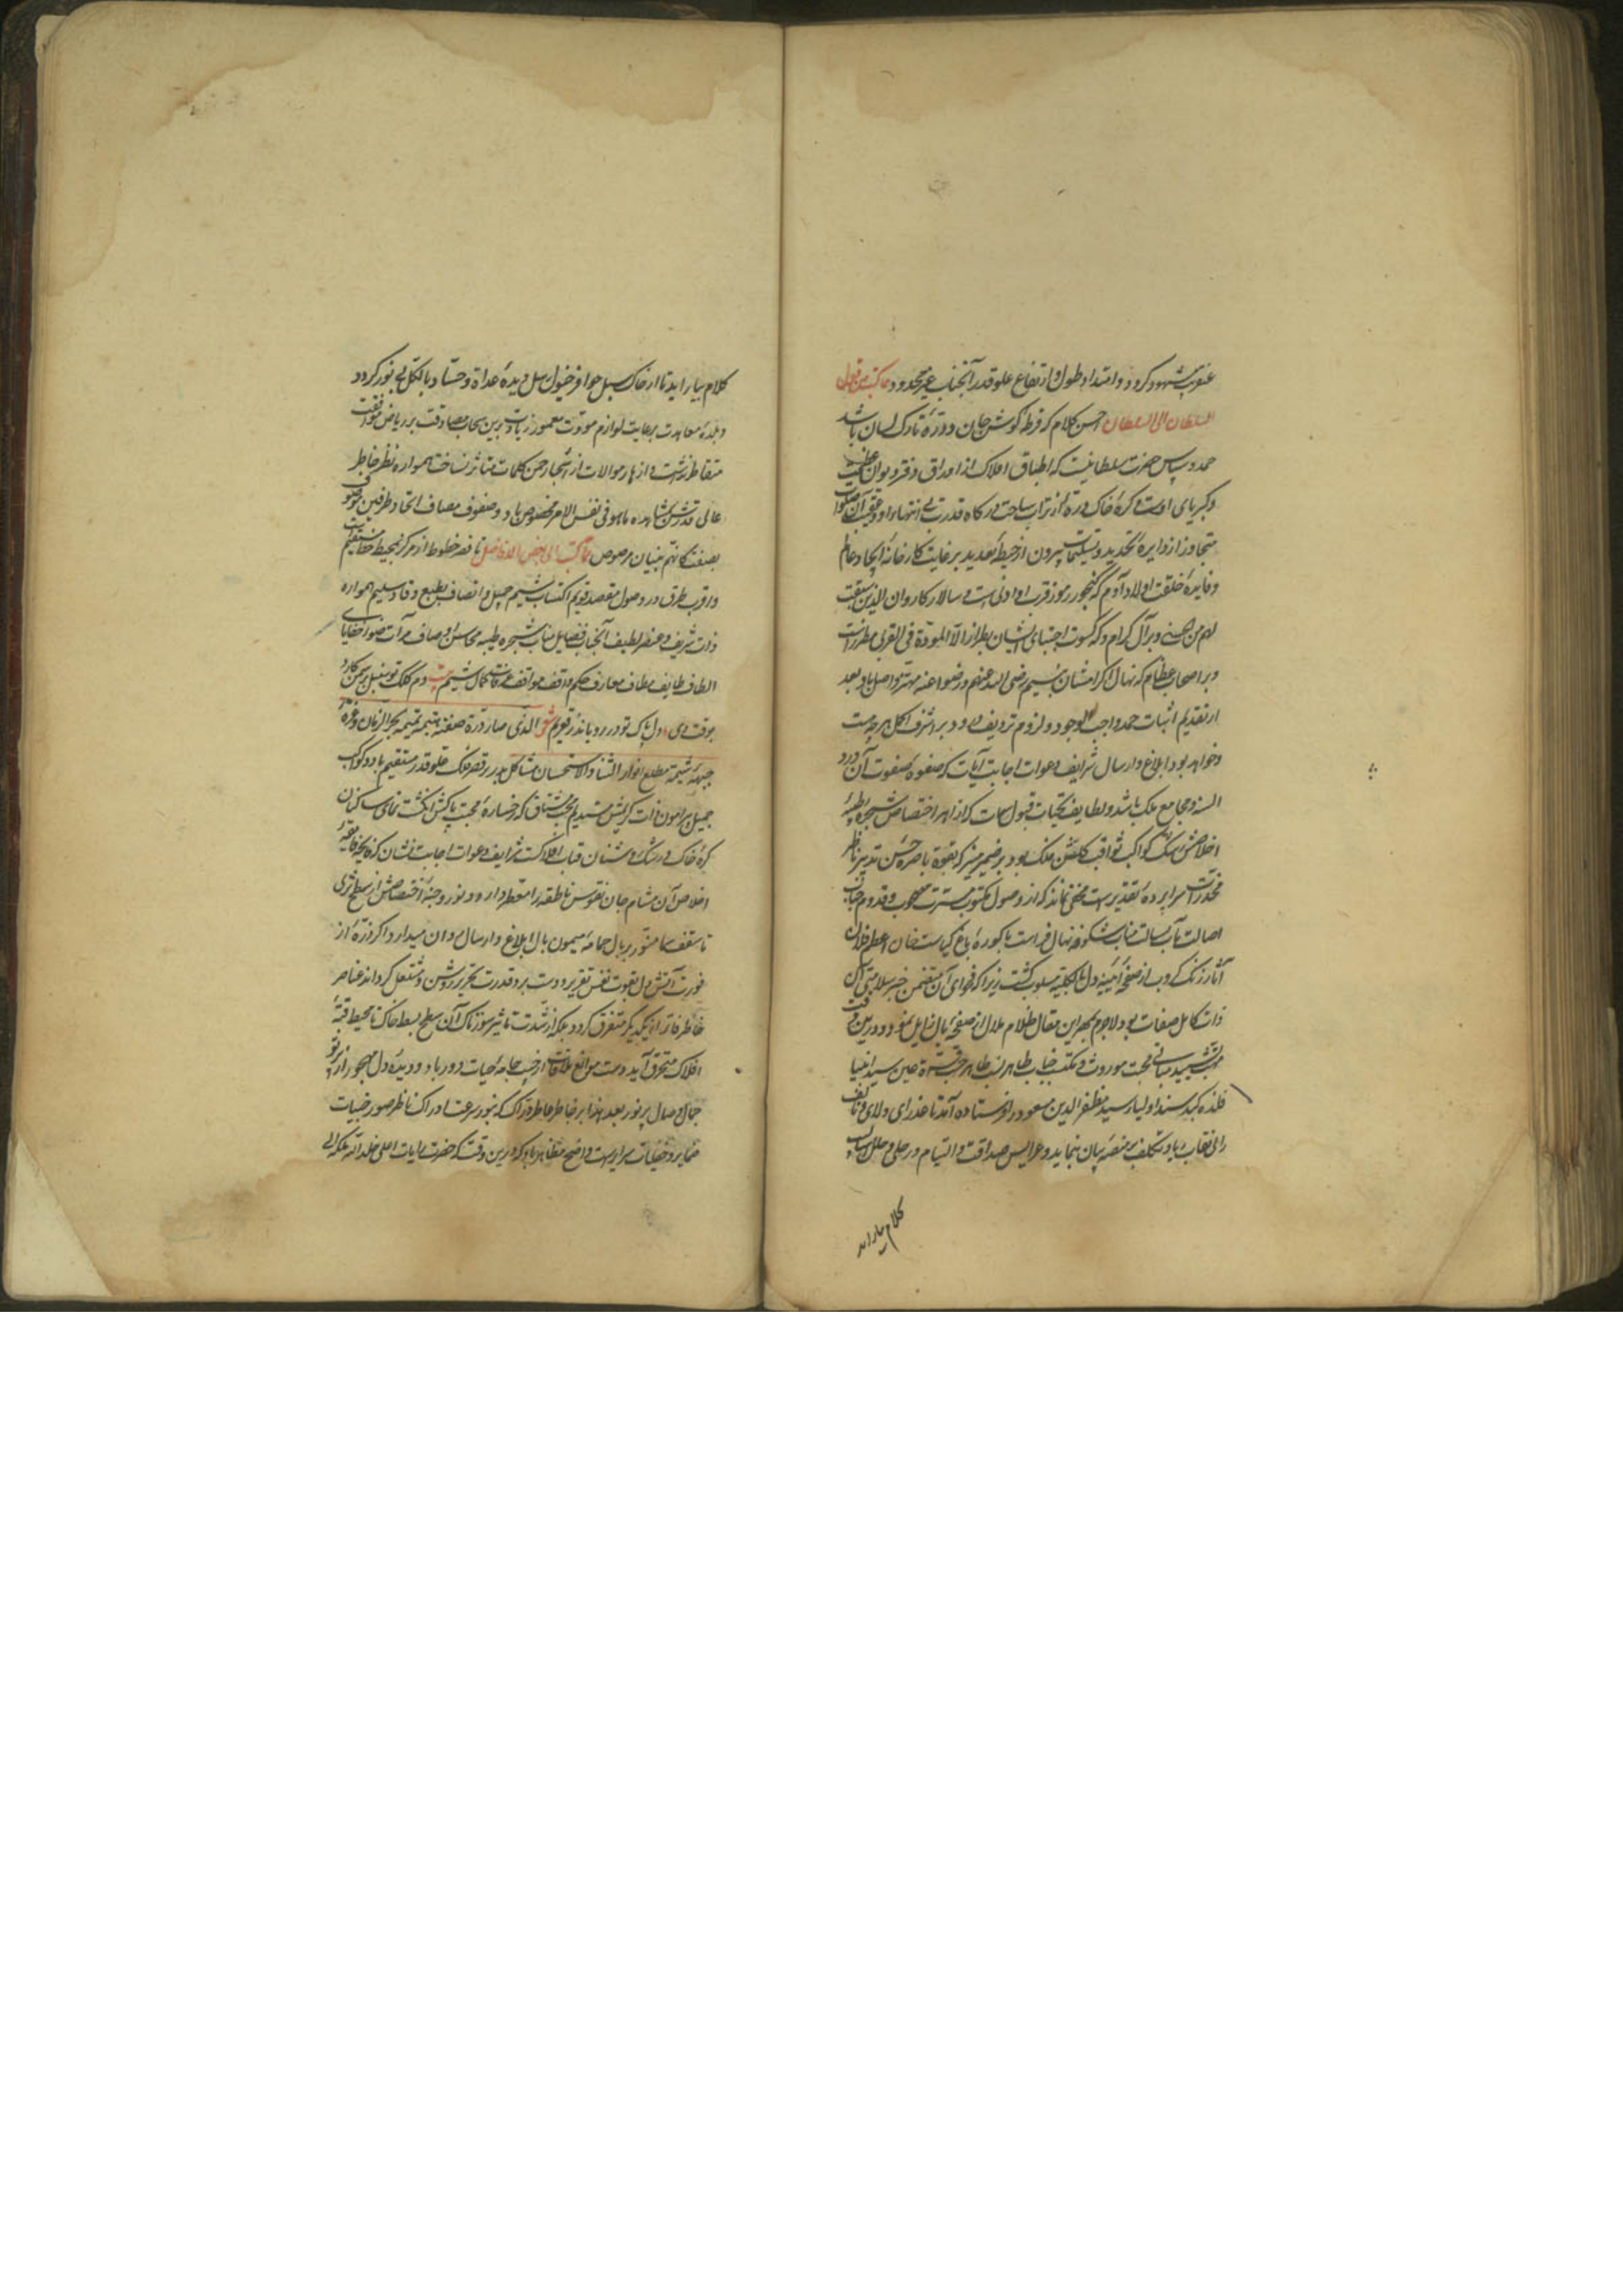 عنوبت مشهود کردد و امتداد طول و ارتفاع علو قدر آنجناب غیر محدود مما کتب من قبل
السلطان الی السلطان احسن کلام که قرطهٔ کوش جان و درّهٔ تارک لسان باشد
حمد و سپاس حضرت سلطانیست که اطباق افلاک از اوراق دفتر دیوان عظمت
و کبریای اوست و کرهٔ خاک ذرهٔ از تراب ساحت درکاه قدرت بی انتها و او و عقیب آن صلوات
متجاوز از دایرهٔ تحدید و تسلیمات بیرون از حیطهٔ تعدید بر غایت کارخانهٔ ایجاد عالم
و فایدهٔ خلقت اولاد آدم که کنجور رموز قرب او ادنی است و سالار کاروان الذین سبقت
لهم من الحسنی و بر آل کرام او که کسوت اجتبای ایشان بطراز الا المودة فی القربی مطرزست
و بر اصحاب عظام که نهال اکرامشان بنسیم رضی الله عنهم و رضوا عنه مهتز و اصل باد و بعد
از تقدیم اثبات حمد واجب الوجود و لزوم تردیف درود بر اشرف کل هر چه هست
و خواهد بود ابلاغ و ارسال شرایف دعوات اجابت آیات که صفوهٔ صفوت آن ورد
السنهٔ مجامع ملک باشد و لطایف تحیات قبول سمات که ازاهر اختصاص شجرهٔ طیبهٔ
اخلاصش رشک کواکب ثواقب کلشن فلک بود بر ضمیر منیر که بقوة باصرهٔ حسن تدبیر ناظر
مخدرات سراپردهٔ تقدیرست مخفی نماند که از وصول مکتوب مسرت اسلوب و قدوم جناب
اصالت مآب بسالت مناب شکوفهٔ نهال فراست باکورهٔ باغ کیاست خان اعظم فلان
آثار زنک کروب از صفحهٔ آیینهٔ دل بالکلیة مسلوب کشت زیرا که فحوای آن متضمن خبر سلامتی آن
ذات کامل صفات بود لاجرم بحر این مقال ظلام ملال از صفحهٔ بال زایل نمود و درین وقت
تشیید مبانی محبت موروث و مکتسب جناب طاهر نسب ظاهر حسب قرة عین سید انبیا
فلذهٔ کبد سند اولیا سید مظفر الدین مسعود را فرستاده آمد تا عذرای ولای و تالف
را بی نقاب ریا و تکلف بر منصهٔ بیان بنماید و عرایس صداقت و التیام در حلی و حلل اسالیب
کلام بیاراید
کلام بیاراید تا از خاک سبیل حوافر خیول رسل دیدهٔ عداة و حساد بالکل بی نور کردد
و بلدهٔ معاهدت برعایت لوازم مودت معمور زیادت برین سحاب مصادقت بر ریاض موافقت
متقاطر نداشت و ازهار موالات از اشجار چمن کلمات متناثر نساخت همواره نظر خاطر
عالی قدرش بمشاهدهٔ ماهو فی نفس الامر مخصوص باد و صفوف مصاف اتحاد طرفین موصوف
بصفت کانهم بنیان مرصوص مما کتب الی بعض الافاضل تا قصر خطوط از مرکز بمحیط خط مستقیم
و اقرب طرق در وصول مقصد قویم اکتساب شیم جمیل و اتصاف بطبع وقاد سلیم همواره
ذات شریف و عنصر لطیف آنجناب فضایل مناب شجرهٔ طیبهٔ محاسن اوصاف مرآت صور خفایای
الطاف طایف مطاف معارف حکم واقف مواقف عرفات کمال شیم بیت دم کلک تو سنبل بر سمن کارد
بوقت دی دل پاک تو در رو یاند ز قعر یم شعر الذی صار درة صفته یتیمة تمیمة نحر الزمان و غرة
جبهة شیمته مطلع انوار الثناء و الاستحسان مشاکل بدر بر قصر فلک علو قدر مستقیم باد و کواکب
جمیل پیرامون ذات کریمش مستدیم محب مشتاق که رخسارهٔ محبت پاکش انکشت نمای ساکنان
کرهٔ خاک و رشک روشنان قباب افلاکست شرایف دعوات اجابت نشان که فایحهٔ فایقهٔ
اخلاص آن مشام جان نفوس ناطقه را معطر دارد و نور وجنهٔ اختصاصش از سطح ثری
تا سقف سما منور بر بال حمامهٔ میمون بال ابلاغ و ارسال روان میدارد اکر ذرهٔ از
فورت آتش دل بقوت نفس تقریر و دست برد قدرت تحریر روشن و مشتعل کرداند عناصر
خاطر فاتر از یکدیکر متفرق کردد بلکه از شدت تاثیر سوزناک آن سطح بسط خاک تا محیط قبهٔ
افلاک محترق آید دست موانع ملاقات از جیب جامهٔ حیات دور باد و دیدهٔ دل مهجور از پرتو
جمال وصال پر نور بعد هذا بر خاطر عاطر دراک که بنور سرعت ادراک ناظر صور خبیات
ضمایر و خفیات سرایرست واضح و ظاهر باد که درین وقت که حضرت رایات اعلی خلد الله ملکه الی